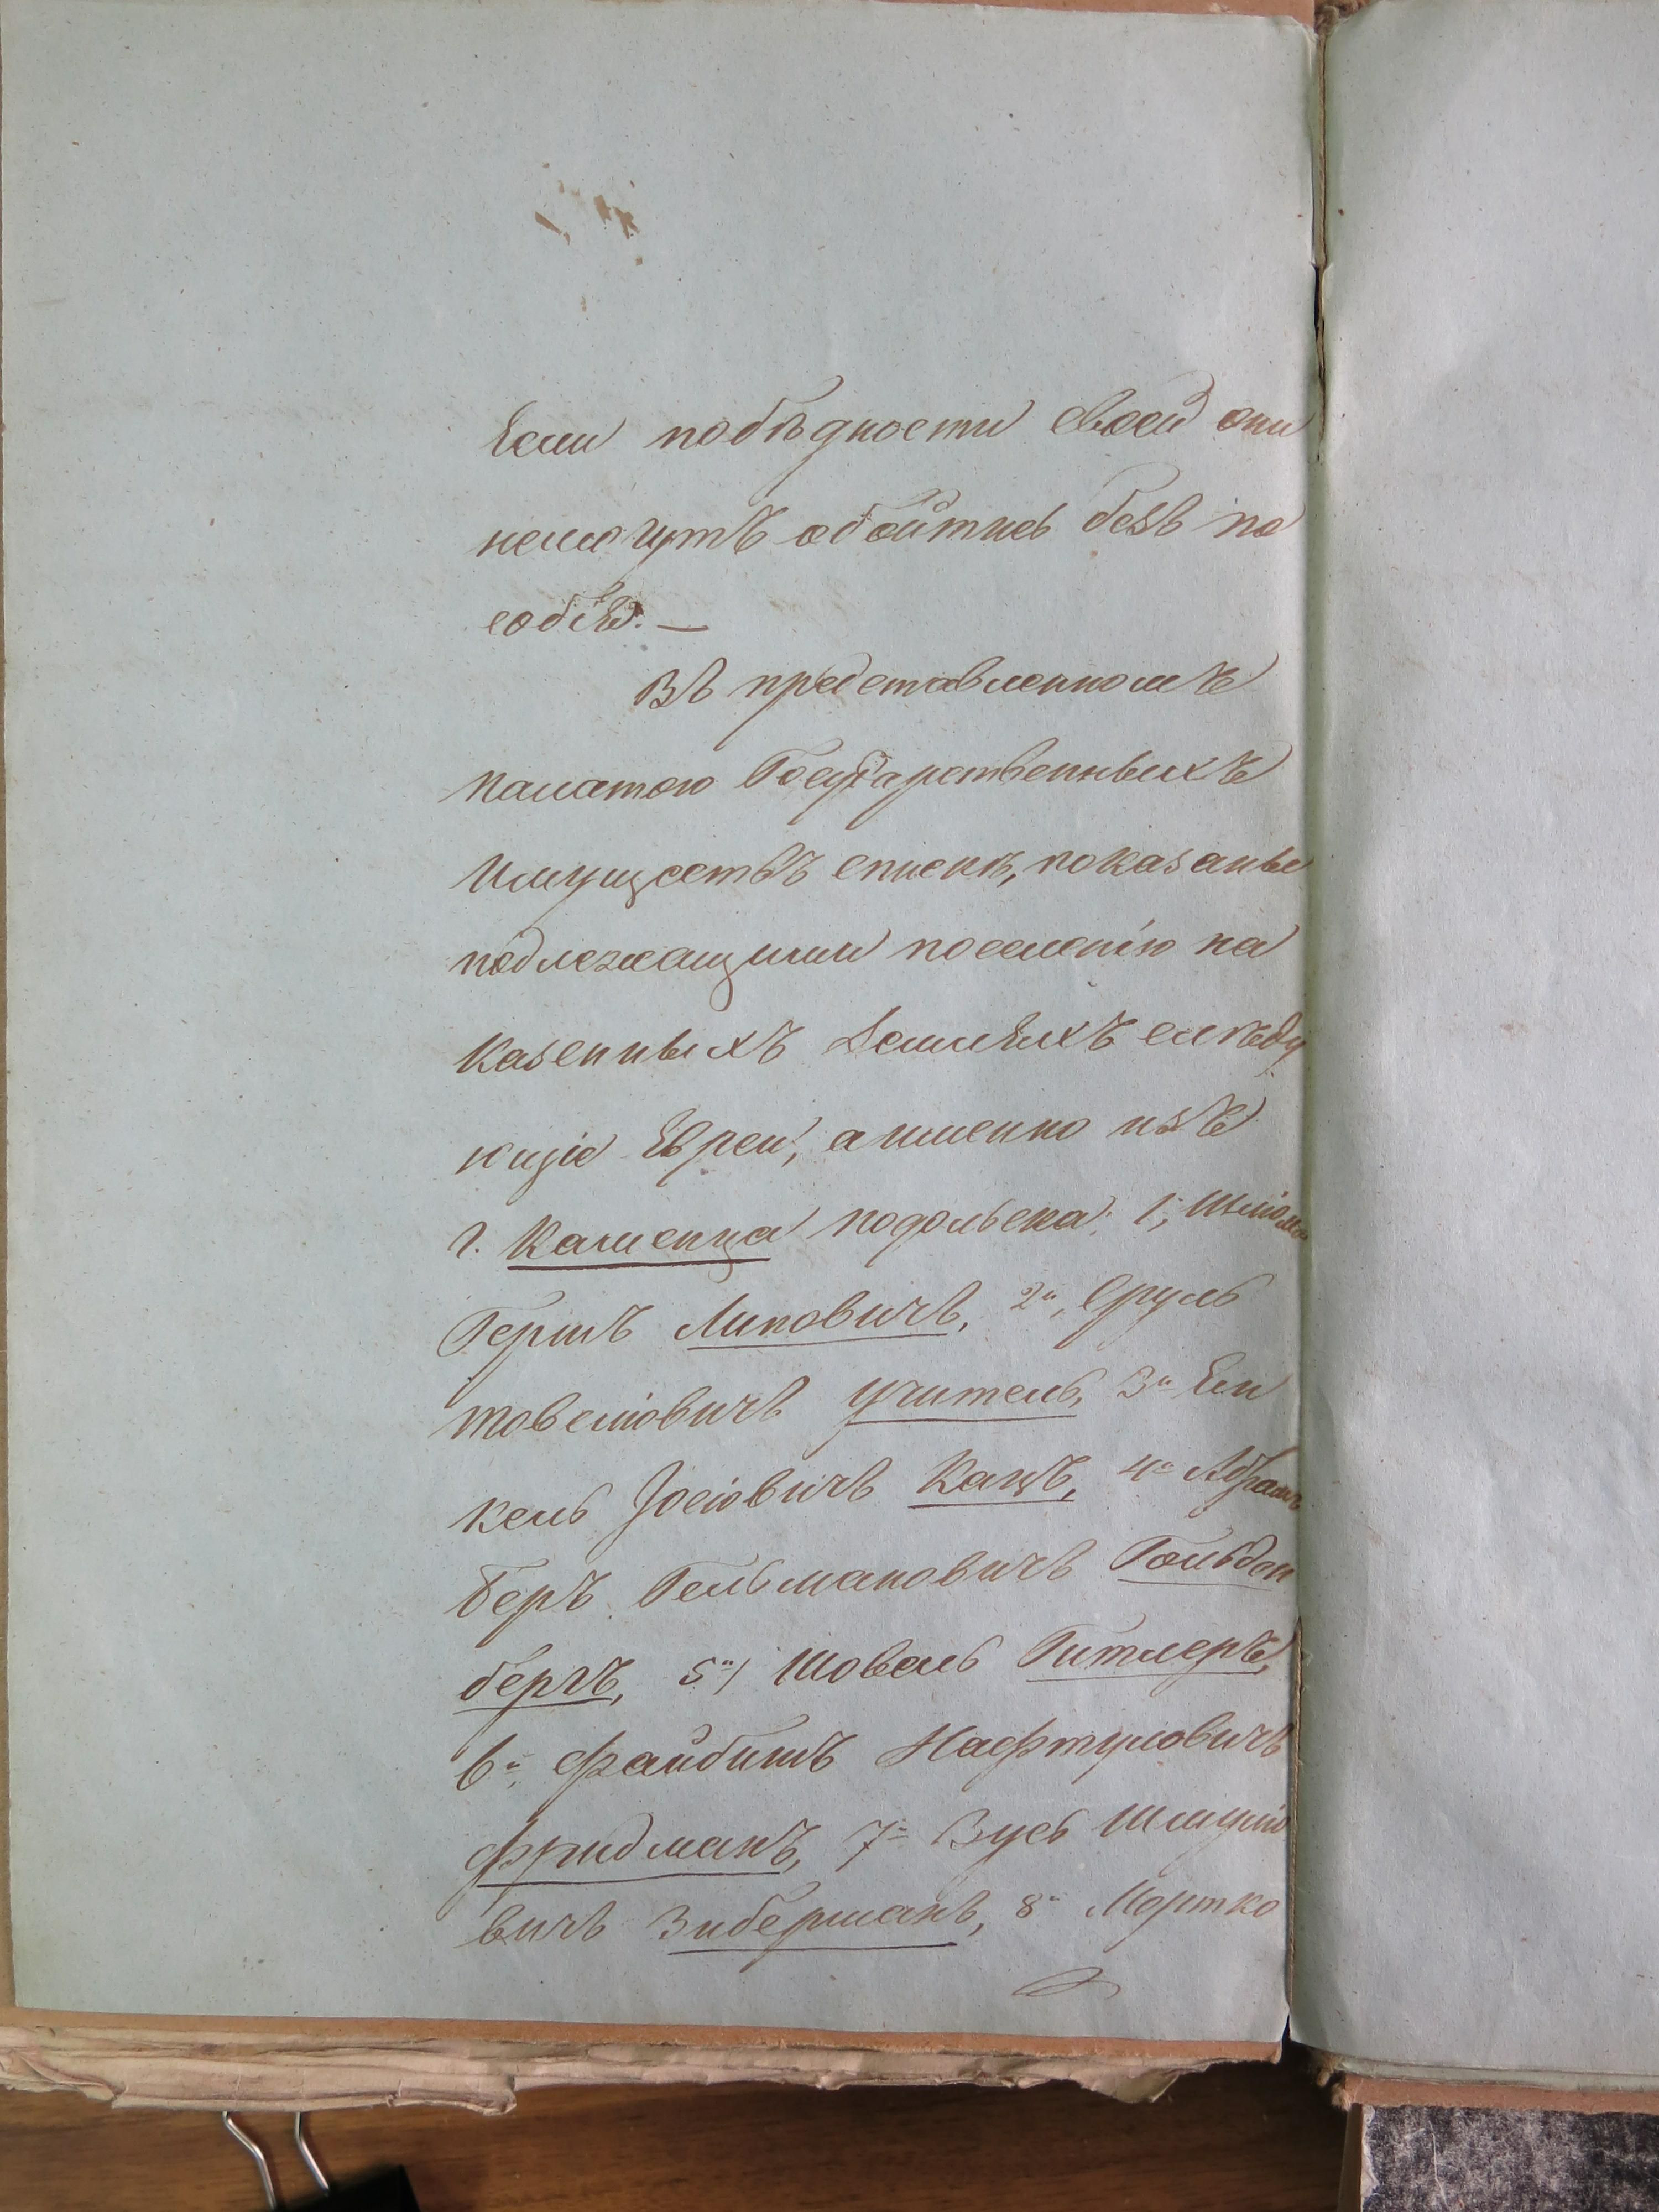 Если побѣдности своей они
немогутъ обойтись безъ по
собія. —
Въ представленномъ
палатою Государственныхъ
Имуществъ спискѣ, показаны
подлежащими поселенію на
казенныхъ земляхъ слѣду
ющіе Евреи, аименно изъ
г. Каменца подольска: 1, Шліома
Гершъ Липовичъ, 2й, Сруль
товсіовичъ учитель, 3й Ян
кель Іосіовичъ Кацъ, 4й Абрамъ
беръ Гельмановичъ Гольден
бергъ, 5й/ Шовель Гитлеръ,
6й, Файбишъ Нафтуловичъ
Фридманъ, 7й Зусь Шмуліо
вичъ Зиберманъ, 8й Мортко